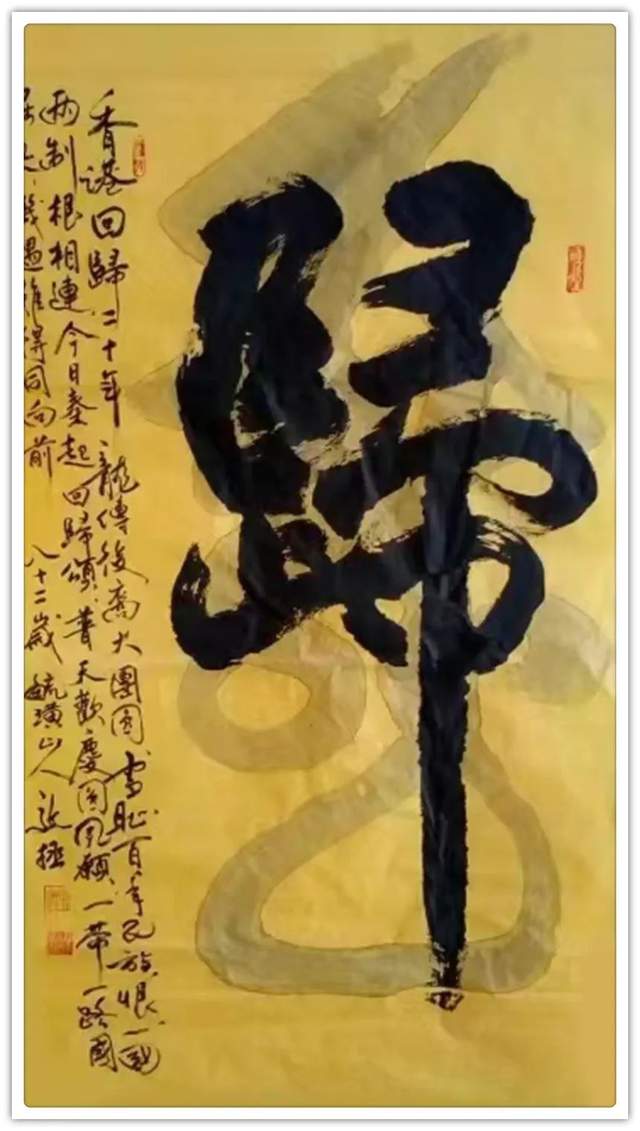 歸
香港回歸二十年龍傳後裔大團圓雪恥百年民族恨一國
两制根相連今日奏起回歸頌普天歡慶圓夙願一帶一路國
大機遇難得同向前八十二歲毓璜山人